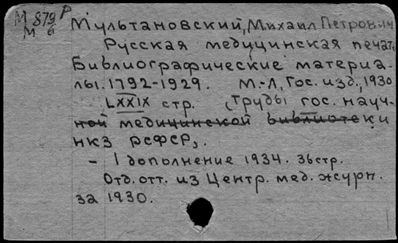 М 879 Р
М 6
Мультановский, Михаил Петрович
Русская медицинская печать
Библиографические материа-
лы. 1792-1929. М.-Л, Гос. изд., 1930
LXXIX стр. (Труды гос. науч-
ной медицинской библиотеки
нкз РСФСР).
- 1 дополнение 1934. 36стр.
Отд. отт. из Центр. мед. журн.
за 1930.